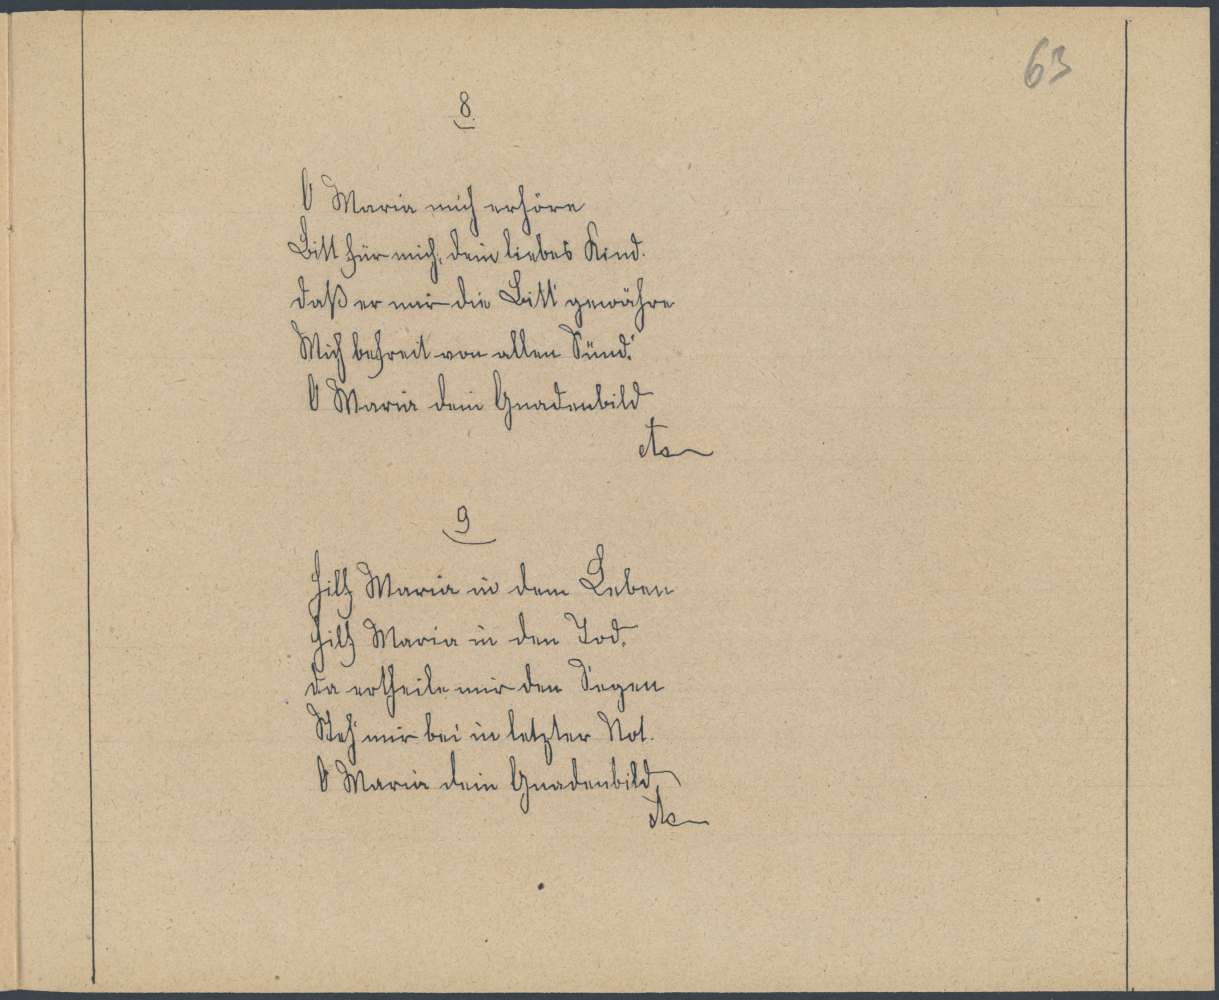 63
8.
O Maria mich erhöre
Bitt für mich, dein liebes Kind.
daß er mir die Bitt' gewähre
Mich befreit von allen Sünd.'
O Maria dein Gnadenbild
etc
9
Hilf Maria in dem Leben
Hilf Maria in den Tod,
da ertheile mir den Segen
Steh' mir bei in letzter Not.
O Maria dein Gnadenbild
etc